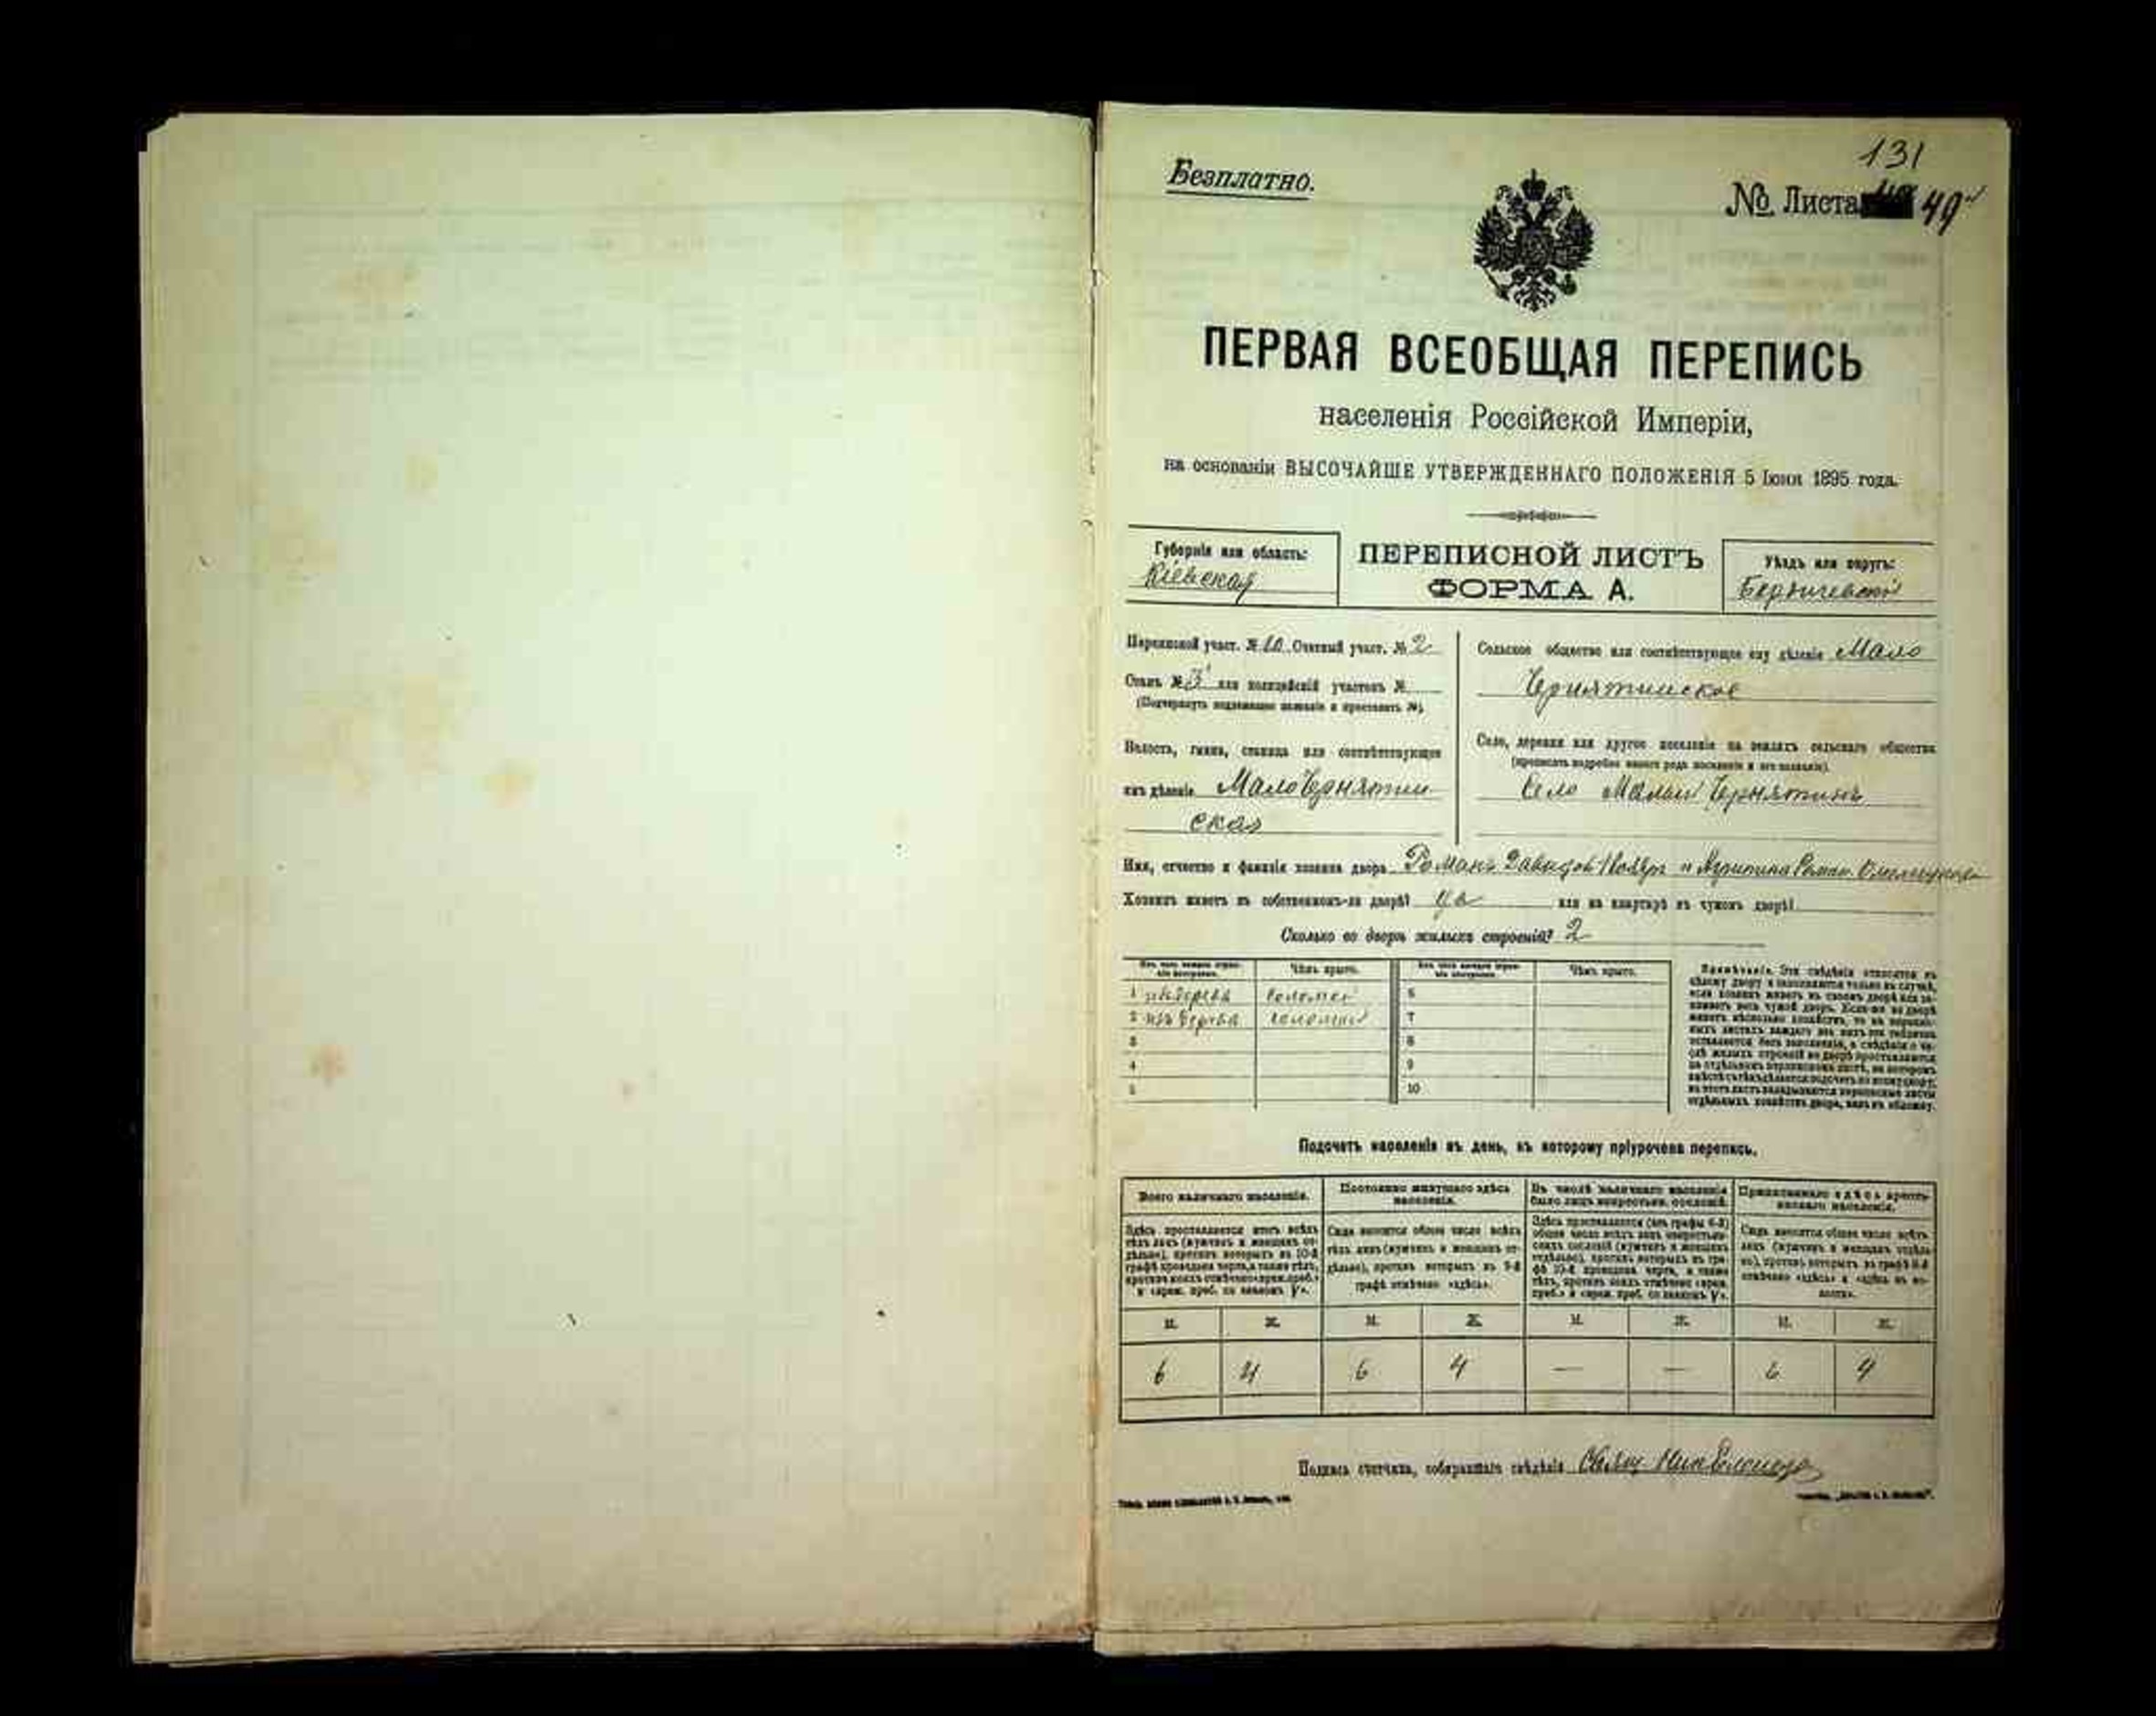 131
Безплатно.
№ Листа 49
ПЕРВАЯ ВСЕОБЩАЯ ПЕРЕПИСЬ
населенія Россійской Имперіи,
на основаніи ВЫСОЧАЙШЕ УТВЕРЖДЕННАГО ПОЛОЖЕНІЯ 5 Іюня 1895 года.
Губернія или область:
Кіевская
ПЕРЕПИСНОЙ ЛИСТЪ
ФОРМА А.
Уѣздъ или округъ:
Бердичевскій
Переписной участ. № 10 Счетный участ. № 2
Станъ № 3 или полицейскій участокъ №
(Подчеркнуть подлежащее названіе и проставить №).
Волость, гмина, станица или соотвѣтствующее
имъ дѣленіе МалоЧернятин
ская
Сельское общество или соотвѣтствующее ему дѣленіе Мало
Чернятинское
Село, деревня или другое поселеніе на земляхъ сельскаго общества
(прописать подробно какого рода поселеніе и его названіе).
Село Малый Чернятинъ
Имя, отчество и фамилія хозяина двора Романъ Давидов и Роман.
Хозяинъ живетъ въ собственномъ-ли дворѣ? да или на квартирѣ въ чужомъ дворѣ?
Сколько во дворѣ жилыхъ строеній? 2
Изъ чего каждое строеніе построено. Чѣмъ крыто. Изъ чего каждое строеніе построено. Чѣмъ крыто.
1 изъ дерева соломой 6
2 изъ дерева соломой 7
3 8
4 9
5 10
Примѣчаніе. Эти свѣдѣнія относятся къ
цѣлому двору и заполняются только въ случаѣ,
если хозяинъ живетъ въ своемъ дворѣ или за-
нимаетъ весь чужой дворъ. Если-же во дворѣ
живетъ нѣсколько хозяйствъ, то на перепис-
ныхъ листахъ каждаго изъ нихъ эта табличка
оставляется безъ заполненія, а свѣдѣнія о чи-
слѣ жилыхъ строеній во дворѣ проставляются
на отдѣльномъ переписномъ листѣ, на которомъ
вмѣстѣ съ тѣмъ дѣлается подсчетъ по всему двору;
въ этотъ листъ вкладываются переписные листы
отдѣльныхъ хозяйствъ двора, какъ въ обложку.
Подсчетъ населенія въ день, къ которому пріурочена перепись.
Всего наличнаго населенія.
Здѣсь проставляется итогъ всѣхъ
тѣхъ лицъ (мужчинъ и женщинъ от-
дѣльно), противъ которыхъ въ 10-й
графѣ проведена черта, а также тѣхъ,
противъ коихъ отмѣчено «врем. преб.»
и «врем. преб. со знакомъ V».
Постоянно живущаго здѣсь
населенія.
Сюда вносится общее число всѣхъ
тѣхъ лицъ (мужчинъ и женщинъ от-
дѣльно), противъ которыхъ въ 9-й
графѣ отмѣчено «здѣсь».
Въ числѣ наличнаго населенія
было лицъ некрестьян. сословій.
Здѣсь проставляется (изъ графы 6-й)
общее число всѣхъ лицъ некрестьян-
скихъ сословій (мужчинъ и женщинъ
отдѣльно), противъ которыхъ въ гра-
фѣ 10-й проведена черта, а также
тѣхъ, противъ коихъ отмѣчено «врем.
преб.» и «врем. преб. со знакомъ V».
Приписаннаго здѣсь кресть-
янскаго населенія.
Сюда вносится общее число всѣхъ
лицъ (мужчинъ и женщинъ отдѣль-
но), противъ которыхъ въ графѣ 8-й
отмѣчено «здѣсь» и «здѣсь въ во-
лости».
М. Ж. М. Ж. М. Ж. М. Ж.
6 4 6 4 — — 6 4
Подпись счетчика, собиравшаго свѣдѣнія